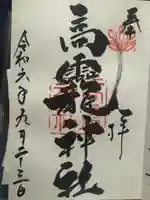 奉拝
高靇神社
令和六年九月二十三日